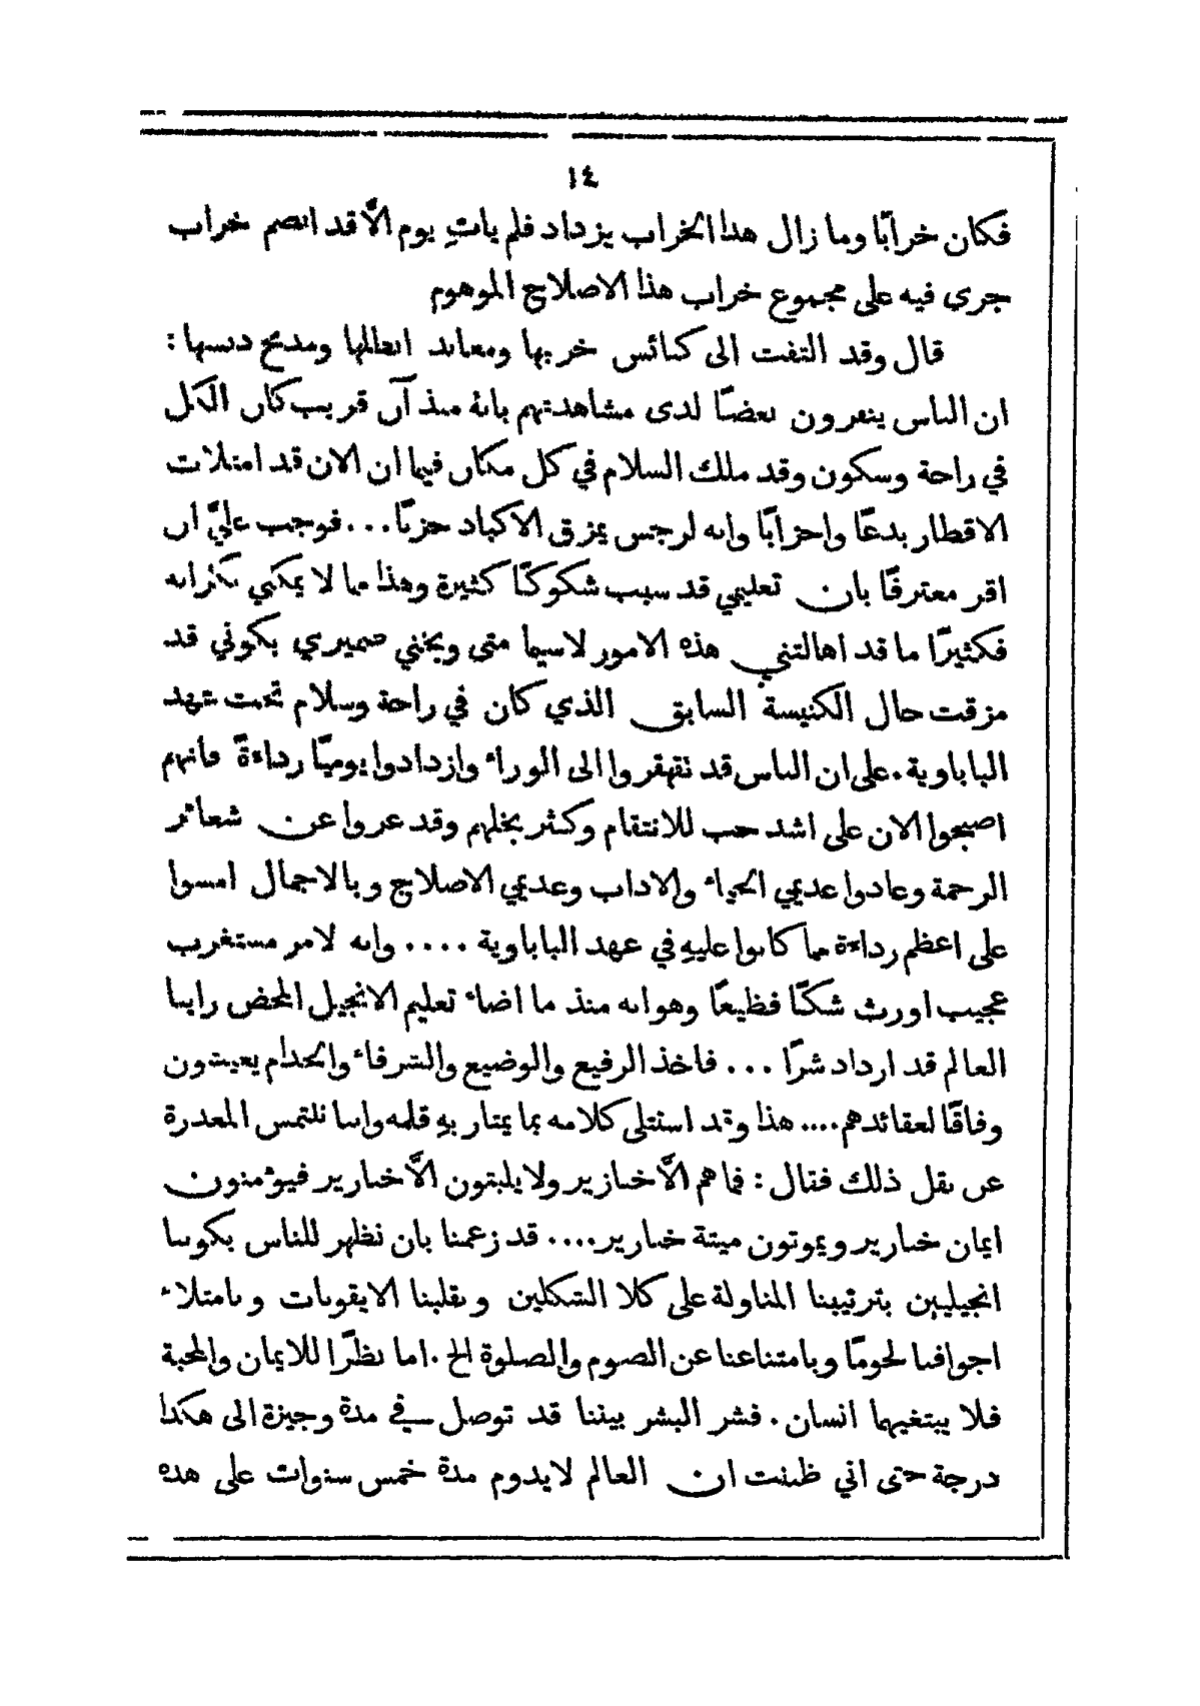 ١٤
فكان خرابًا وما زال هذا الخراب يزداد فلم ياتِ يوم الَّا قد انضم خراب
جرى فيه على مجموع خراب هذا الاصلاح الموهوم
قال وقد التفت الى كنائس خربها ومعابد ابطلها ومذبح دنسها :
ان الناس ينفرون بعضًا لدى مشاهدتهم بانهُ منذ آن قريب كان الكل
في راحة وسكون وقد ملك السلام في كل مكان فيما ان الان قد امتلات
الاقطار بدعًا واحزابًا وانه لرجس يمزق الاكباد حزنًا ... فوجب عليَّ ان
اقر معترفًا بان تعليمي قد سبب شكوكًا كثيرة وهذا مما لا يمكني نكرانه
فكثيرًا ما قد اهالتني هذه الامور لاسيما متى وبخني ضميري بكوني قد
مزقت حال الكنيسة السابق الذي كان في راحة وسلام تحت عهد
الباباوية . على ان الناس قد تقهقروا الى الوراء وازدادوا يوميًا رداءةً فانهم
اصبحوا الان على اشد حب للانتقام وكثر بخلهم وقد عروا عن شعائر
الرحمة وعادوا عديمي الحياء والاداب وعديمي الاصلاح وبالاجمال امسوا
على اعظم رداءة مما كانوا عليهِ في عهد الباباوية .... وانه لامر مستغرب
عجيب اورث شكًا فظيعًا وهو انه منذ ما اضاء تعليم الانجيل المحض راينا
العالم قد ازداد شرًا ... فاخذ الرفيع والوضيع والشرفاء والخدام يعيشون
وفاقًا لعقائدهم .... هذا وقد استتلى كلامه بما يمتاز بهِ قلمه واننا نلتمس المعذرة
عن نقل ذلك فقال : فما هم الَّا خنازير ولا يلبثون الَّا خنازير فيؤمنون
ايمان خنازير ويموتون ميتة خنازير .... قد زعمنا بان نظهر للناس بكوننا
انجيليين بترتيبنا المناولة على كلا الشكلين وبقلبنا الايقونات وبامتلاء
اجوافنا لحومًا وبامتناعنا عن الصوم والصلوة الخ . اما نظرًا للايمان والمحبة
فلا يبتغيهما انسان . فشر البشر بيننا قد توصل في مدة وجيزة الى هكذا
درجة حتى اني ظننت ان العالم لايدوم مدة خمس سنوات على هذه